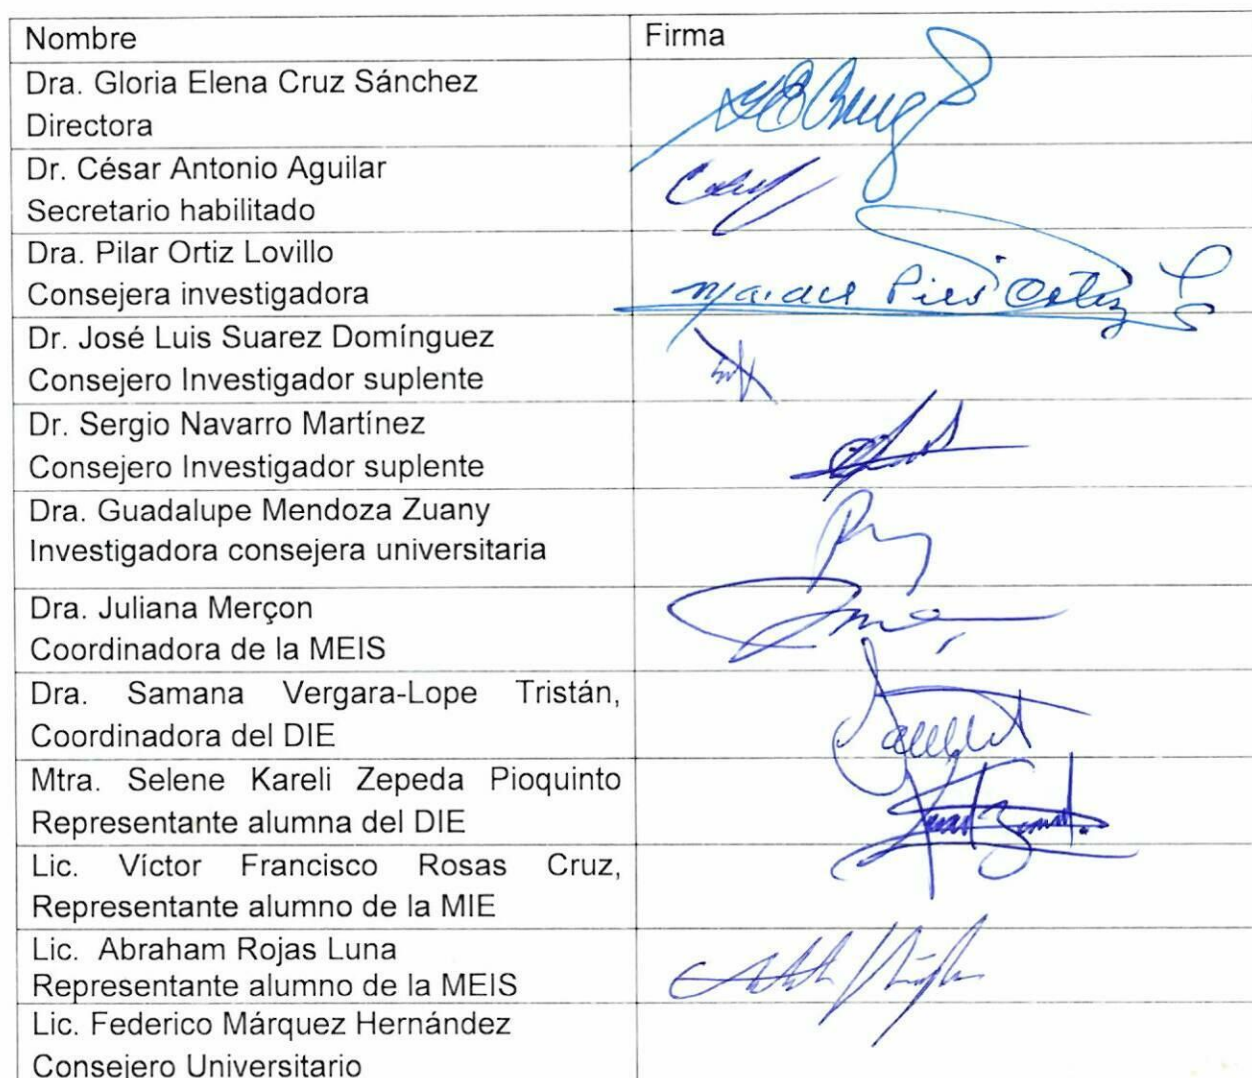 Nombre Firma
Dra. Gloria Elena Cruz Sánchez
Directora
Dr. César Antonio Aguilar
Secretario habilitado
Dra. Pilar Ortiz Lovillo
Consejera investigadora
Ortiz
Dr. José Luis Suarez Domínguez
Consejero Investigador suplente
Dr. Sergio Navarro Martínez
Consejero Investigador suplente
Dra. Guadalupe Mendoza Zuany
Investigadora consejera universitaria
Dra. Juliana Merçon
Coordinadora de la MEIS
Dra. Samana Vergara-Lope Tristán,
Coordinadora del DIE
Mtra. Selene Kareli Zepeda Pioquinto
Representante alumna del DIE
Lic. Víctor Francisco Rosas Cruz,
Representante alumno de la MIE
Lic. Abraham Rojas Luna
Representante alumno de la MEIS
Lic. Federico Márquez Hernández
Consejero Universitario